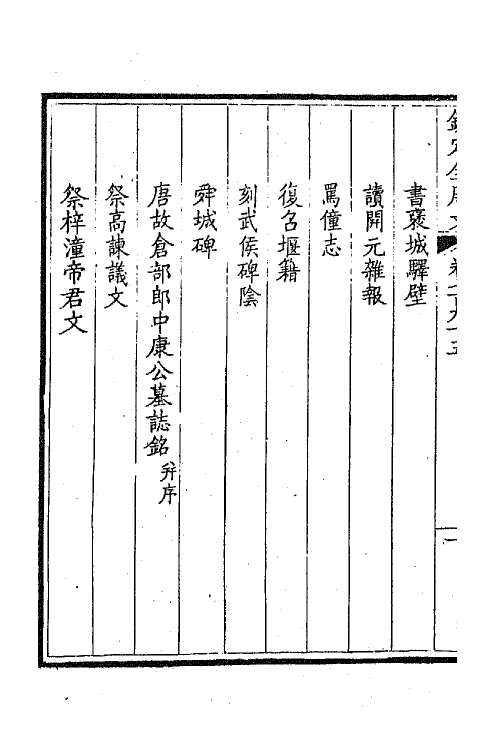 欽定全唐文 卷七百九十五 一
書褒城驛壁
讀開元雜報
罵僮志
復召堰籍
刻武侯碑陰
舜城碑
唐故倉部郎中康公墓誌銘并序
祭高諫議文
祭梓潼帝君文